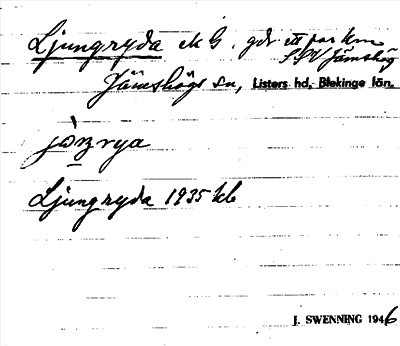 Ljungryda ek G. gdr ett par km
SSV Jämshög
Jämshögs sn, Listers hd, Blekinge län.
jòŋrya
Ljungryda 1935 kb
J. SWENNING 1946